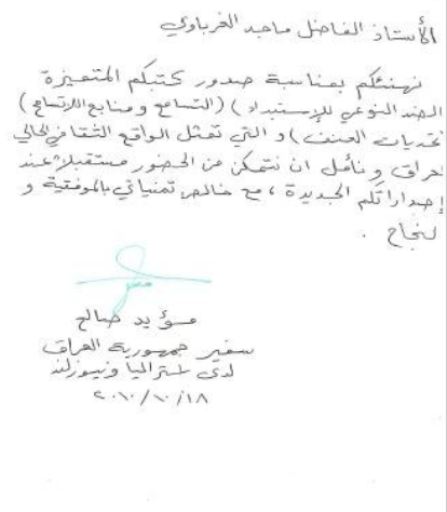 الأستاذ الفاضل ماجد الغرباوي
نهنئكم بمناسبة صدور كتبكم المتميزة
الضد النوعي للإستبداد ) (التسامح ومنابع اللاتسامح )
تحديات العنف ) و التي تمثل الواقع الثقافي الحالي
عراق ونأمل ان نتمكن من الحضور مستقبلاً عند
إصداراتكم الجديدة ، مع خالص تمنياتي بالموفقية و
لنجاح .
مؤيد صالح
سفير جمهورية العراق
لدى استراليا ونيوزلند
٢٠١٠/١٠/١٨